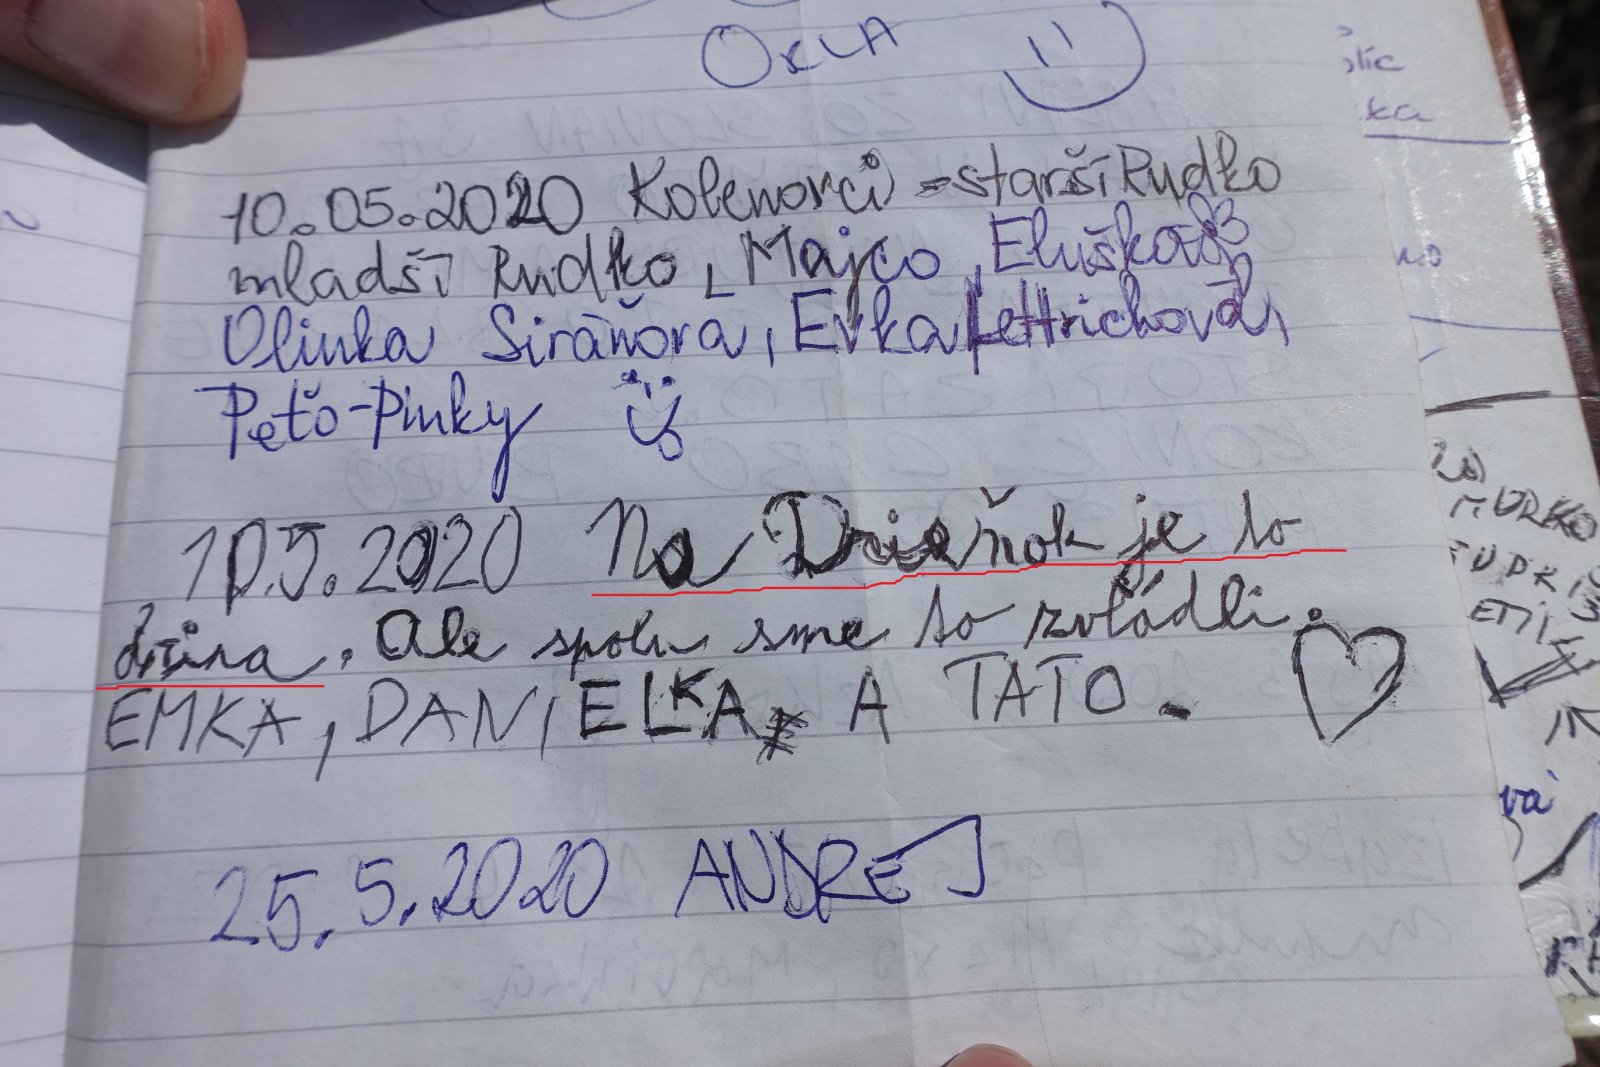 10.05.2020 Kolenovci - starší Rudko
mladší Rudko, Majco, Eluška
Olinka Siráňova, Evka Lettrichová,
Peťo-Pinky
10.5.2020 Na Drieňok je to
džina. Ale spolu sme to zvládli.
EMKA, DANIELKA, A TATO.
25.5.2020 ANDREJ
lic
ka
MURKO
vá